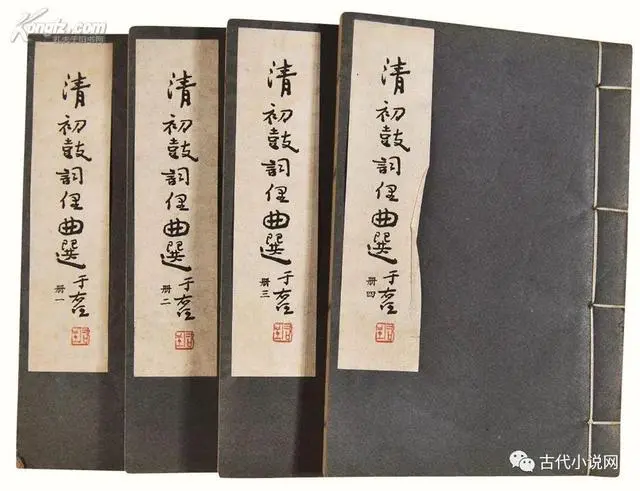 Kongfz.com
孔夫子旧书网
清初鼓詞俚曲選
于
冊一
清初鼓詞俚曲選
于
冊二
清初鼓詞俚曲選
于
冊三
清初鼓詞俚曲選
于
冊四
古代小说网